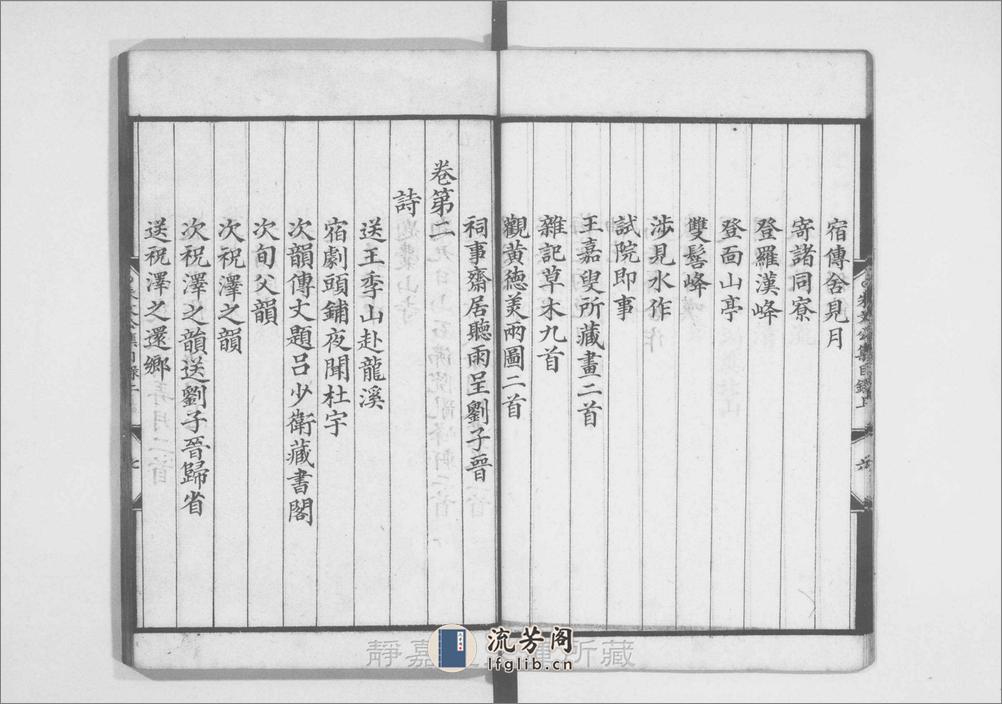 宿傳舍見月
寄諸同寮
登羅漢峰
登面山亭
雙髻峰
涉㵎水作
試院即事
王嘉叟所藏畫二首
雜記草木九首
觀黃德美兩圖二首
祠事齋居聽雨呈劉子晉
卷第二
詩
送王季山赴龍溪
宿劇頭鋪夜聞杜宇
次韻傳丈題呂少衛藏書閣
次旬父韻
次祝澤之韻
次祝澤之韻送劉子晉歸省
送祝澤之還鄉
流芳阁
lfglib.cn